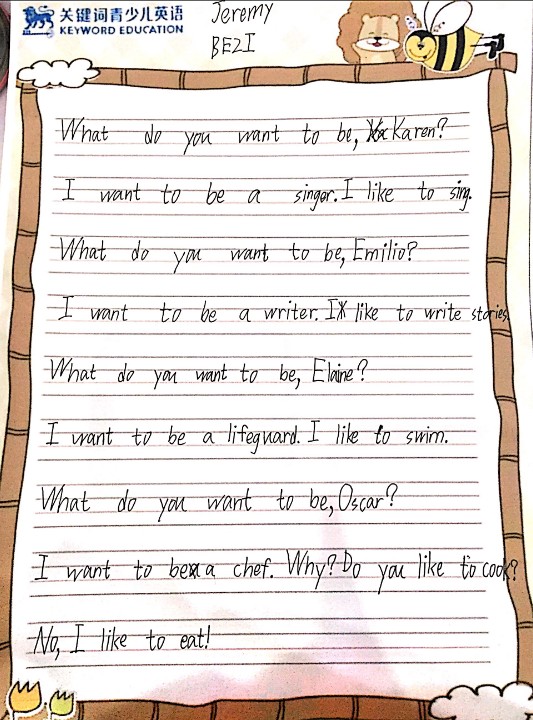 关键词青少儿英语
KEYWORD EDUCATION
Jeremy
BE2I
What do you want to be, Karen?
I want to be a singer. I like to sing.
What do you want to be, Emilio?
I want to be a writer. I like to write stories
What do you want to be, Elaine?
I want to be a lifeguard. I like to swim.
What do you want to be, Oscar?
I want to be a chef. Why? Do you like to cook?
No, I like to eat!